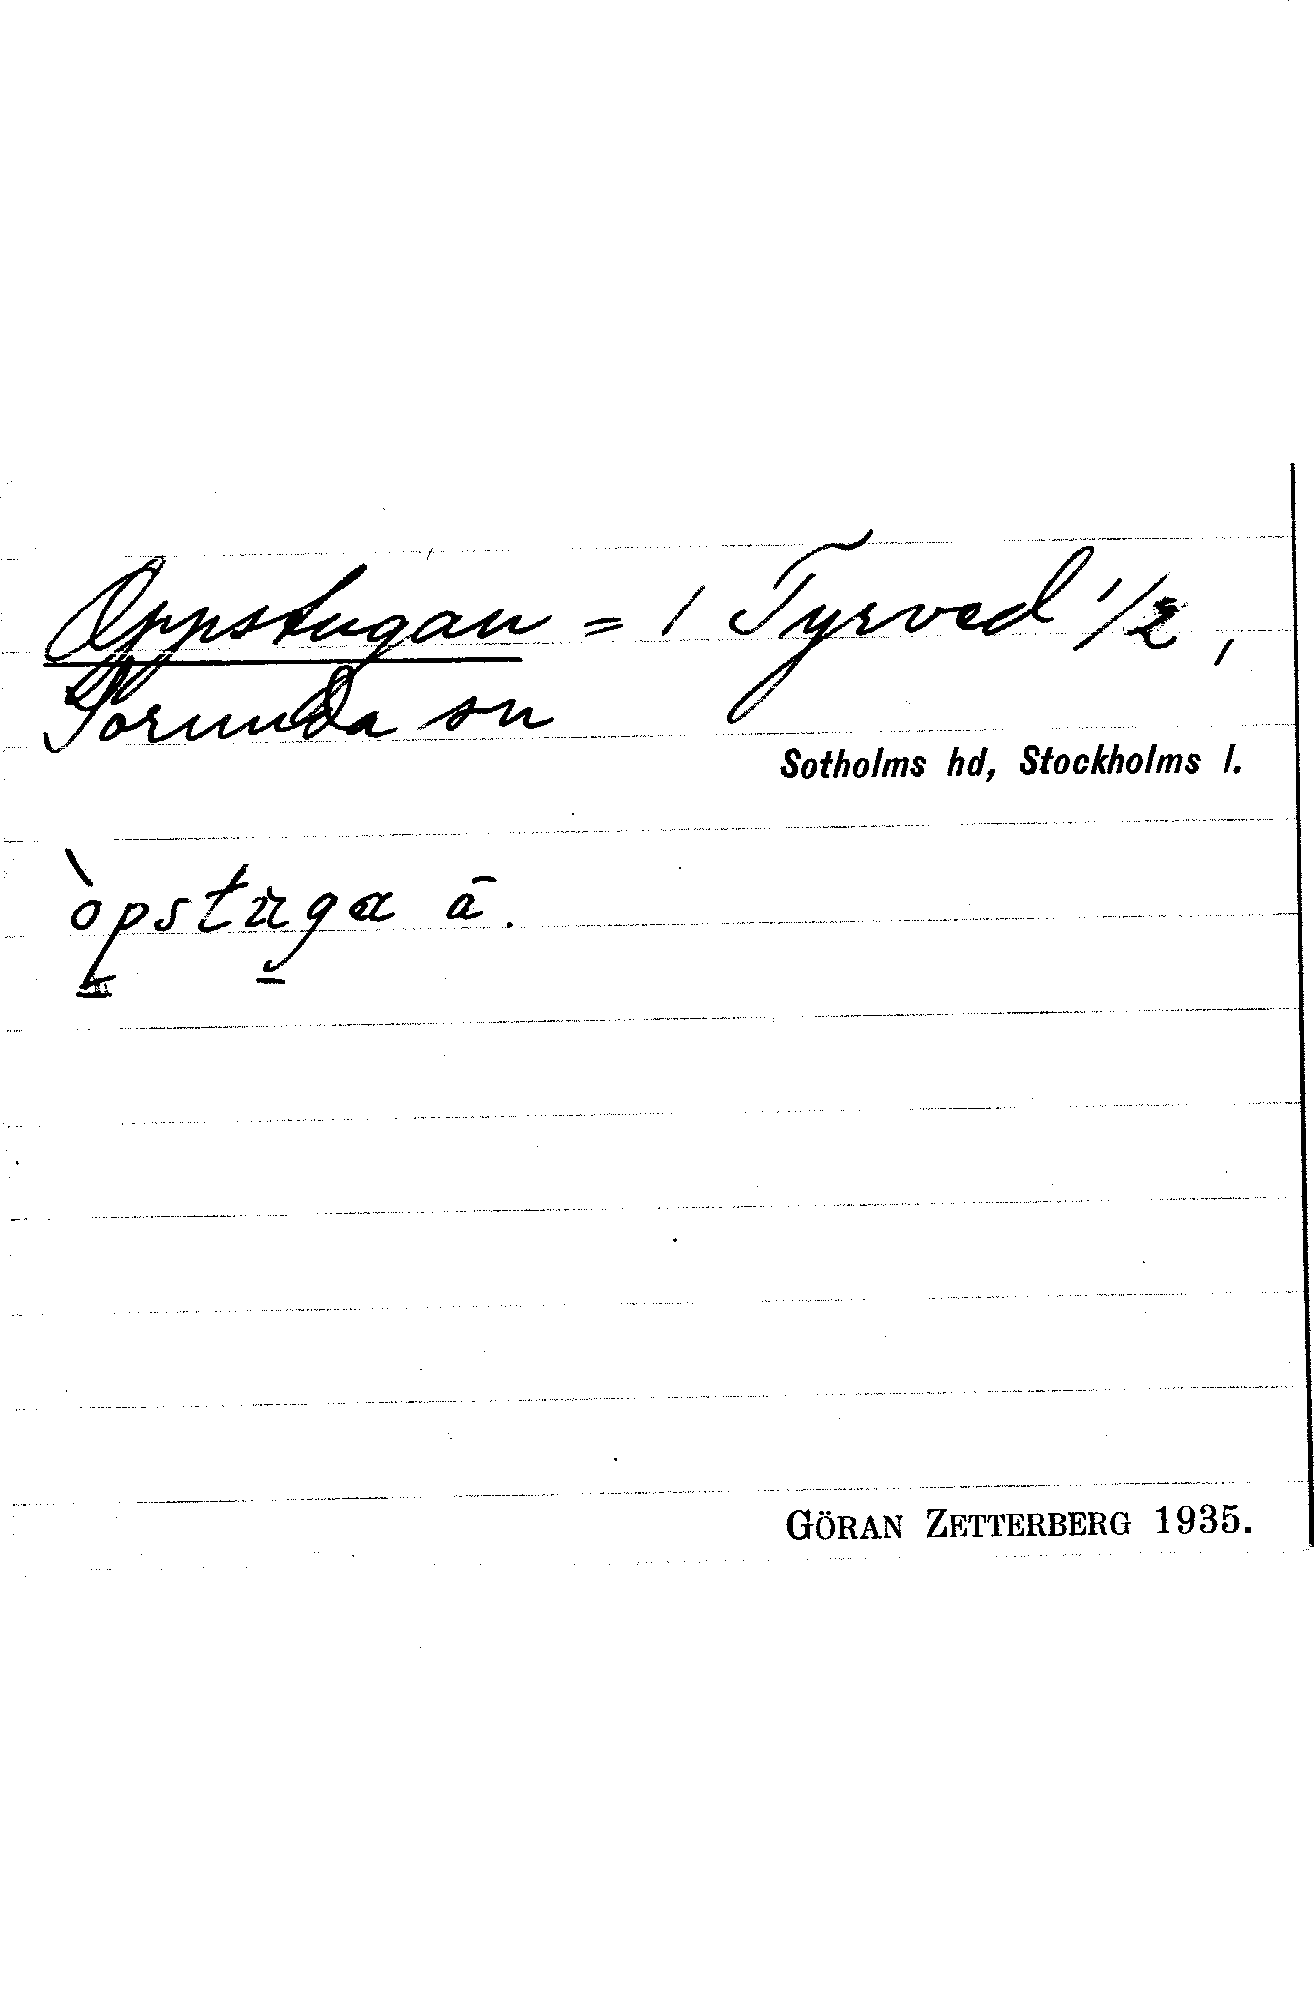 Oppstugan = 1 Tyrved 1/2,
Sorunda sn
Sotholms hd, Stockholms l.
òpstuga ā.
GÖRAN ZETTERBERG 1935.